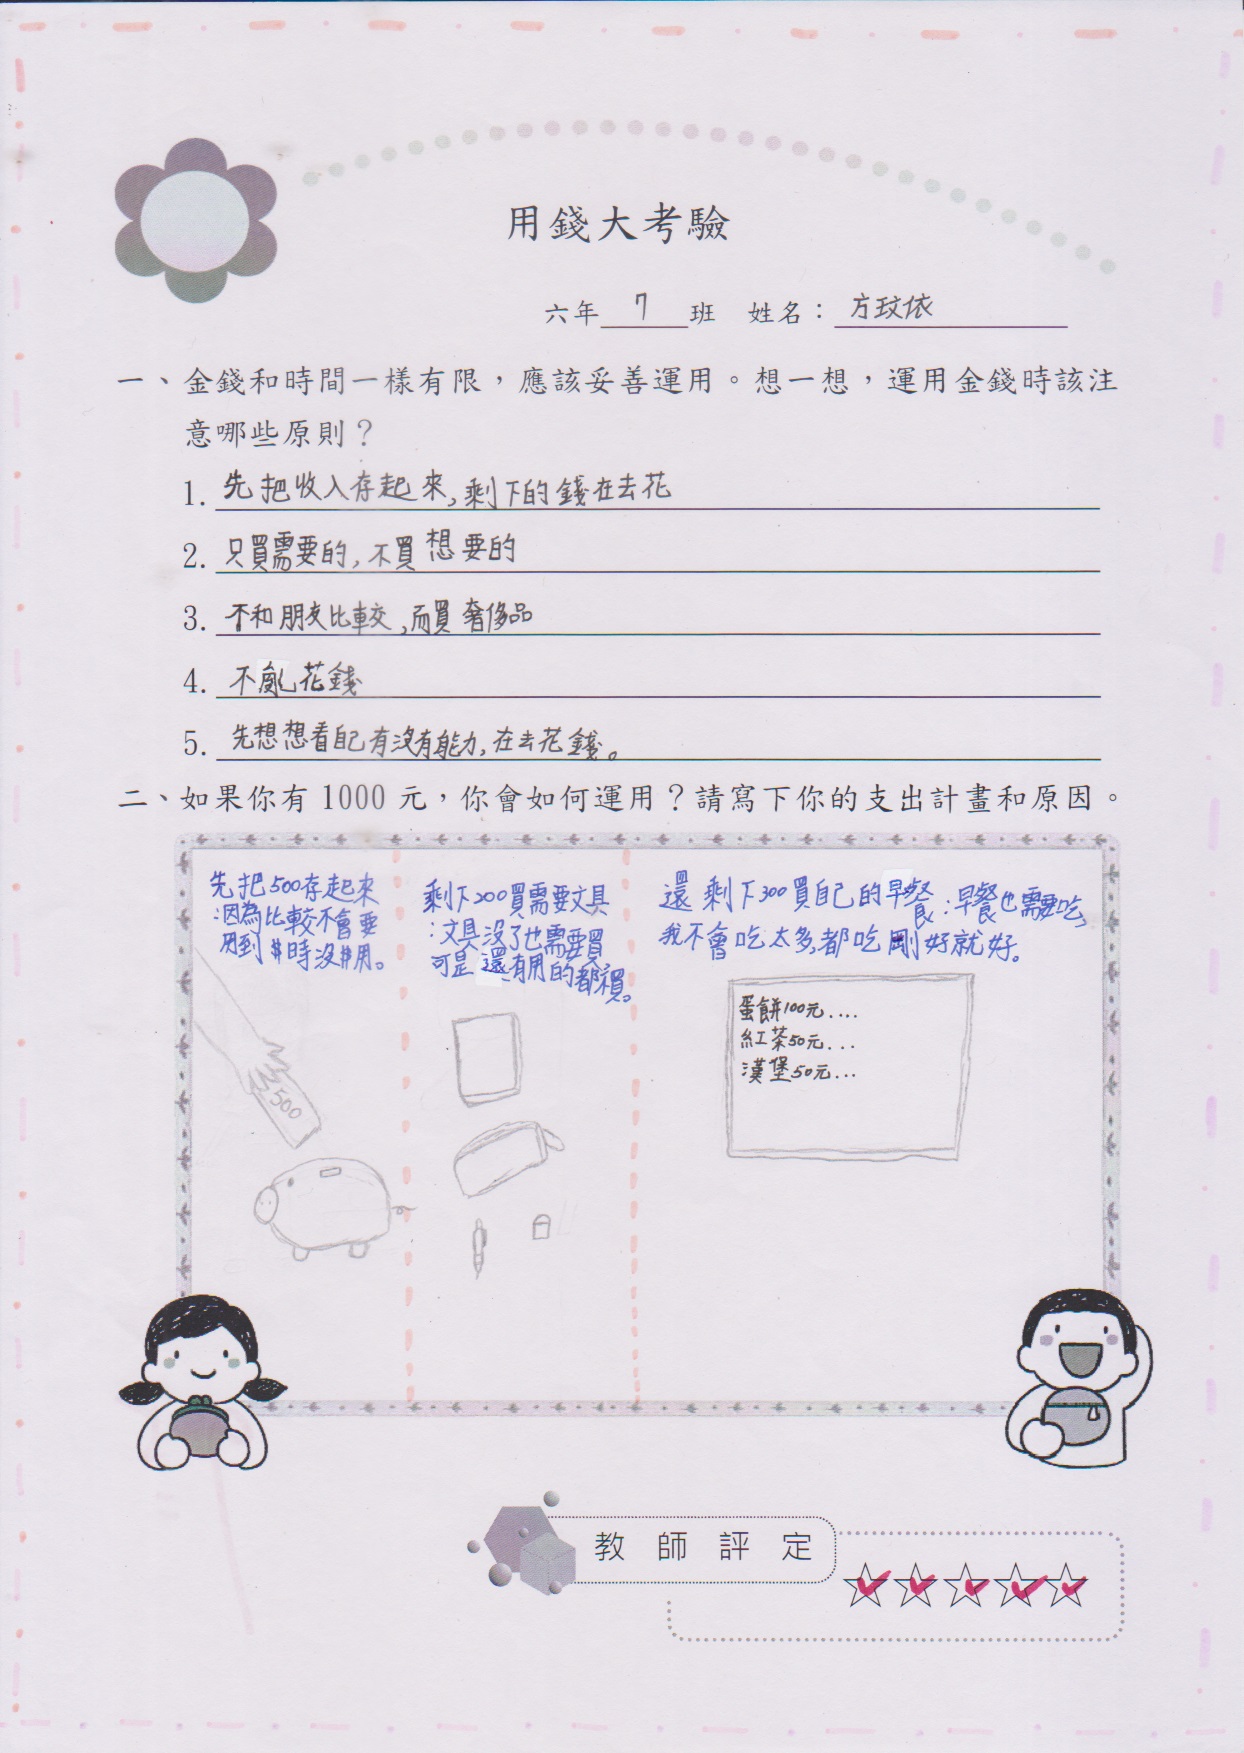 用錢大考驗
六年 7 班 姓名：方玟依
一、金錢和時間一樣有限，應該妥善運用。想一想，運用金錢時該注
意哪些原則？
1. 先把收入存起來,剩下的錢在去花
2. 只買需要的,不買想要的
3. 不和朋友比較,而買奢侈品
4. 不亂花錢
5. 先想想看自己有沒有能力,在去花錢。
二、如果你有 1000 元，你會如何運用？請寫下你的支出計畫和原因。
先把500存起來
:因為比較不會要
用到錢時沒錢用。
剩下200買需要文具
:文具沒了也需要買
可是還有用的都不買。
還剩下300買自己的早餐:早餐也需要吃,
我不會吃太多,都吃剛好就好。
500
蛋餅100元....
紅茶50元...
漢堡50元...
教師評定